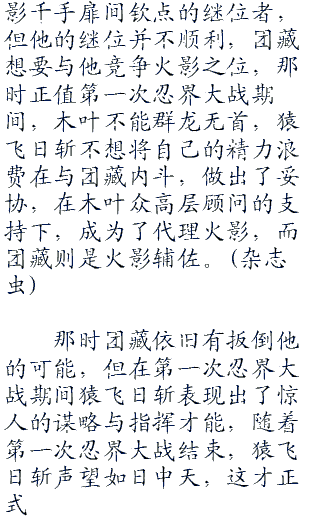 影千手扉间钦点的继位者，
但他的继位并不顺利，团藏
想要与他竞争火影之位，那
时正值第一次忍界大战期
间，木叶不能群龙无首，猿
飞日斩不想将自己的精力浪
费在与团藏内斗，做出了妥
协，在木叶众高层顾问的支
持下，成为了代理火影，而
团藏则是火影辅佐。(杂志
虫)
那时团藏依旧有扳倒他
的可能，但在第一次忍界大
战期间猿飞日斩表现出了惊
人的谋略与指挥才能，随着
第一次忍界大战结束，猿飞
日斩声望如日中天，这才正
式